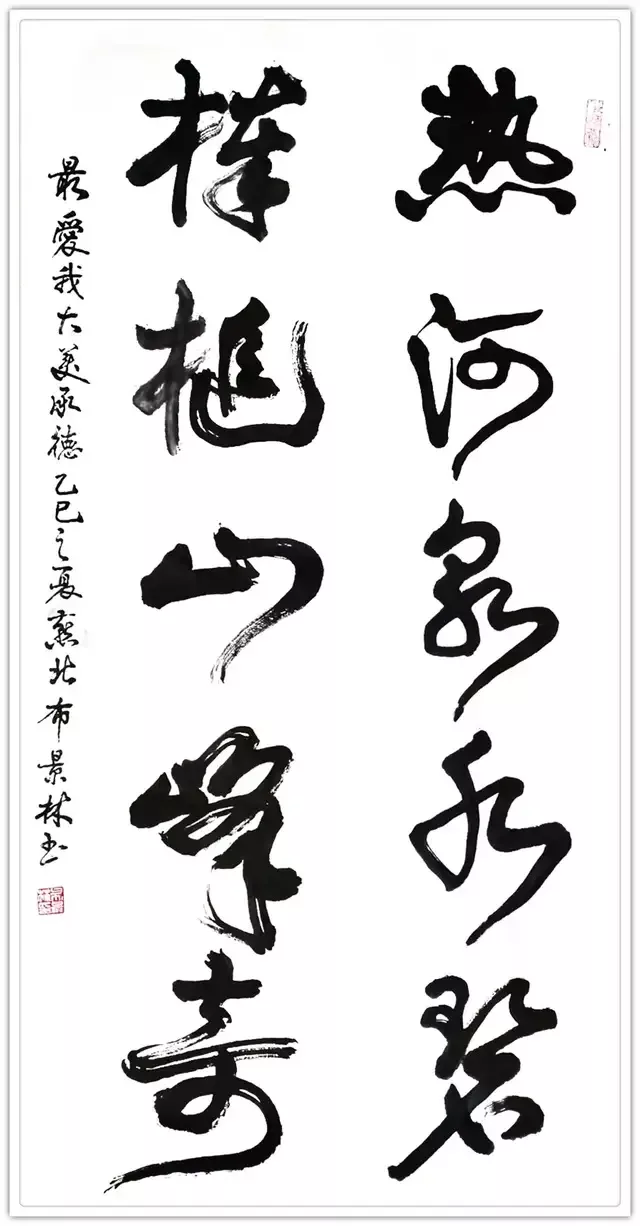 热河泉水碧
棒槌山峰奇
最愛我大美承德乙巳之夏燕北布景林书